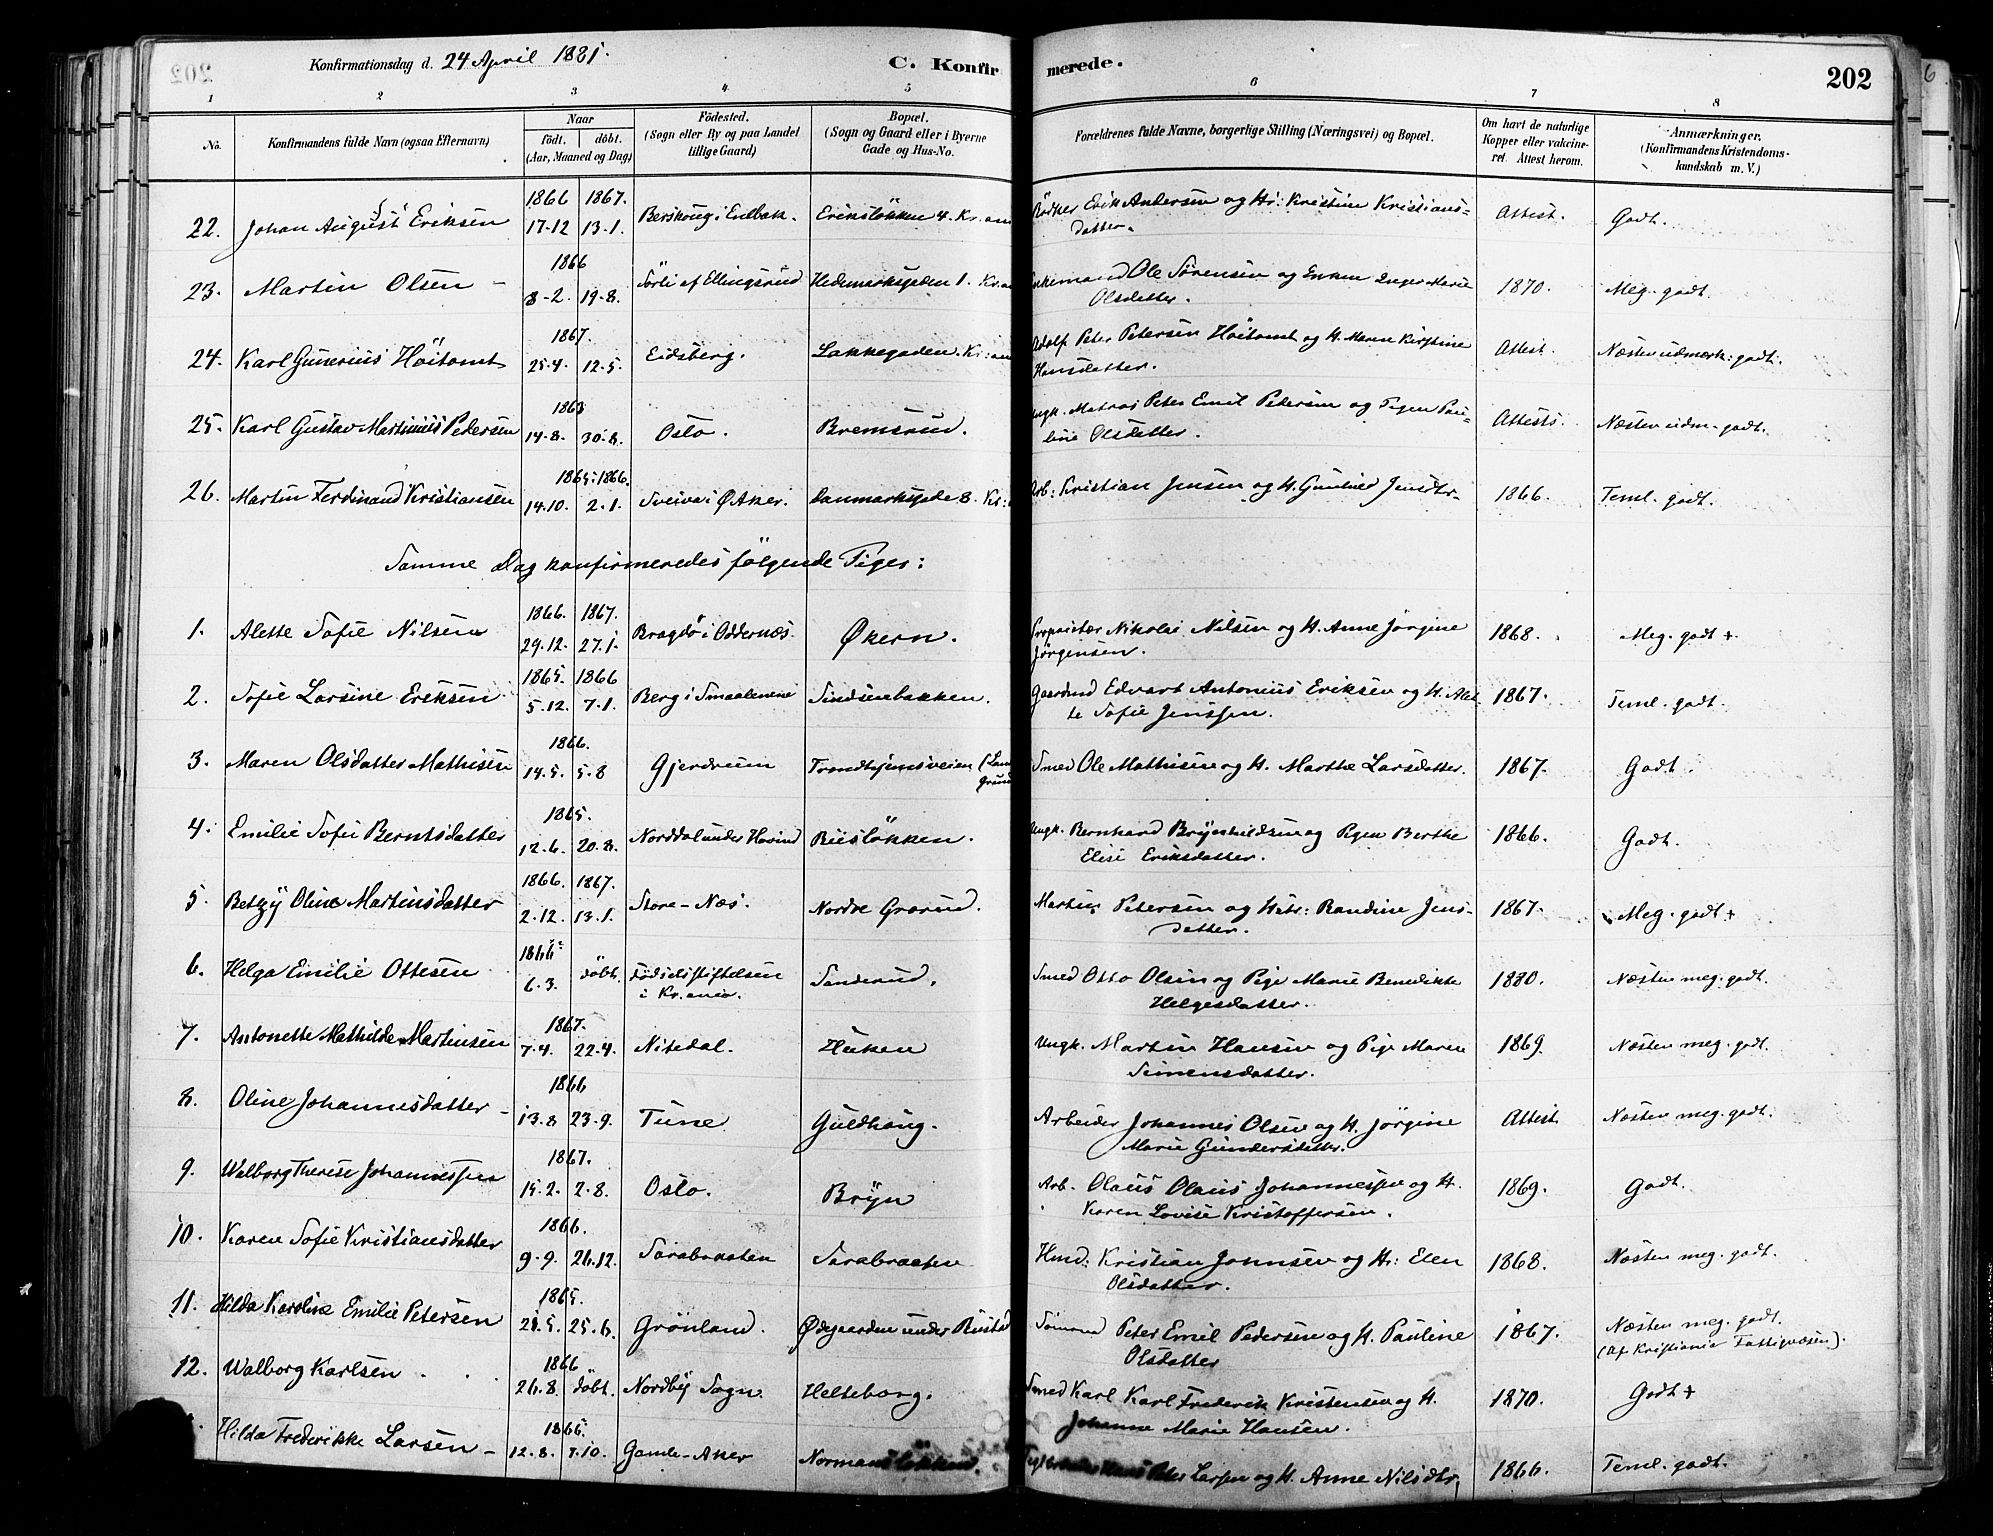 Konfirmationsdag d. 24 April 1881.
C. Konfirmerede.
202
1 2 3 4 5 6 7 8
No. Konfirmandens fulde Navn (ogsaa Efternavn) Naar født. døbt. (Aar, Maaned og Dag) Fødested. (Sogn eller By og paa Landet tillige Gaard) Bopæl. (Sogn og Gaard eller i Byerne Gade og Hus-No. Forældrenes fulde Navne, borgerlige Stilling (Næringsvei) og Bopæl. Om havt de naturlige Kopper eller vakcineret. Attest herom. Anmærkninger. (Konfirmandens Kristendomskundskab m. V.)
22. Johan August Eriksen 1866 17-12 1867. 13-1. Eriksløkken 4. Kr:an Erik Andersen og H: Kristine Kristiansdatter. Attest. Godt.
23. Martin Olsen 1866 8-2. 19-8. Sörli af Ellingsrud Hedemarksgaden 1. Kr.an Enkemand Ole Sørensen og Enken Inger Marie Olsdatter. 1870. Meg. godt.
24. Karl Gunerius Höitomt 1867. 25-4. 12-5. Eidsberg. Lakkegaden. Kr:an Adolf Peter Petersen Höitomt og H. Maren Kirstine Hansdatter. Attest. Næsten udmærk: godt.
25. Karl Gustav Martinius Pedersen 14-8. 30-8. Oslo. Bremsrud. Ungk. Matros Peter Emil Petersen og Pigen Pauline Olsdatter. Attests. Næsten udm. godt.
26. Martin Ferdinand Kristiansen 1865. 14.10. 1866. 2-1. i Ø Aker. Danmarksgade 8. Kr: Arb: Kristian Jensen og H. Gunild Jensdtr. 1866. Teml. godt.
Samme Dag konfirmeredes følgende Piger:
1. Alette Sofie Nilsen 1866. 29.12. 1867. 27.1. Bragdö i Oddernæs. Økern. Proprietær Nikolai Nilsen og H. Anne Jørgine Jørgensen. 1868. Meg. godt +
2. Sofie Larsine Eriksen 1865. 5.12. 1866 7-1. Berg i Smaalenene Sindsenbakken. Gaardmd Edvart Antonius Eriksen og H. Alette Sofie Jenssen. 1867. Teml. godt.
3. Maren Olsdatter Mathisen 1866. 14-5. 5-8 Gjerdrum Trondhjemsveien Smed Ole Mathisen og H. Marthe Larsdatter. 1867. Godt.
4. Emilie Sofie Berntsdatter 1865. 12-6. 20-8. Norddal under Hovind Riisløkken. Ungk. Bernhard Brynhildsen og Pigen Berthe Elise Eriksdatter. 1866. Godt.
5. Betzy Oline Martinsdatter 1866. 2-12. 1867. 13-1. Store-Næs. Nordre Grorud. Martin Petersen og Hstr: Randine Jensdatter. 1867. Meg. godt +
6. Helga Emilie Ottesen 6-3. döbt. Födselsstiftelsen i Kr.ania. Sanderud. Smed Otto Olsen og Pige Marie Benedikte Helgesdatter. 1880. Næsten meg. godt.
7. Antonette Mathilde Martinsen 1867. 7-4. 22-4. Nitedal. Huken Ungk. Martin Hansen og Pige Maren Simensdatter. 1869. Næsten meg. godt.
8. Oline Johannesdatter 1866 13-8 23-9. Tune Guldhaug. Arbeider Johannes Olsen og H. Jörgine Marie Gundersdatter. Attest Næsten meg. godt.
9. Walborg Therese Johannessen 1867. 15-2. 2-8. Oslo. Bryn Arb. Olaus Olaus Johannessen og H. Karen Lovise Kristoffersen. 1869. Godt.
10. Karen Sofie Kristiansdatter 1866. 9-9. 26.12. Sarabraaten Sarabraaten Hmd: Kristian Johnsen og H: Elen Olsdatter. 1868. Næsten meg. godt.
11. Hilda Karoline Emilie Petersen 1865. 25-6. Grönland. Ødegaarden under Bustad Sömand Peter Emil Pedersen og H. Pauline Olsdatter 1867. Næsten meg. godt. (Af Kristiania Fattigvæsen).
12. Walborg Karlsen 1866 26.8. döbt. Nordby Sogn. Helteborg. Smed Karl Karl Frederik Kristensen og H. Johanne Marie Hansen. 1870. Godt +
Hilda Frederikke Larsen 12-8. Gamle-Aker Normansløkken. Peter Larsen og H. Anne Nilsdtr. 1866. Teml. godt.